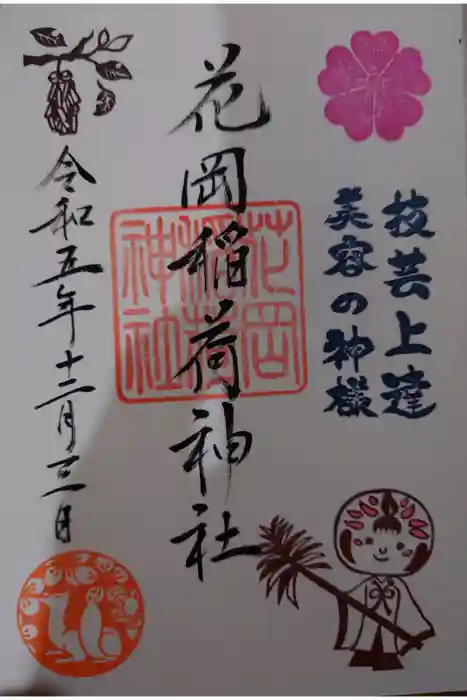 技芸上達
美容の神様
花岡稲荷神社
花岡稲荷神社
令和五年十二月三日